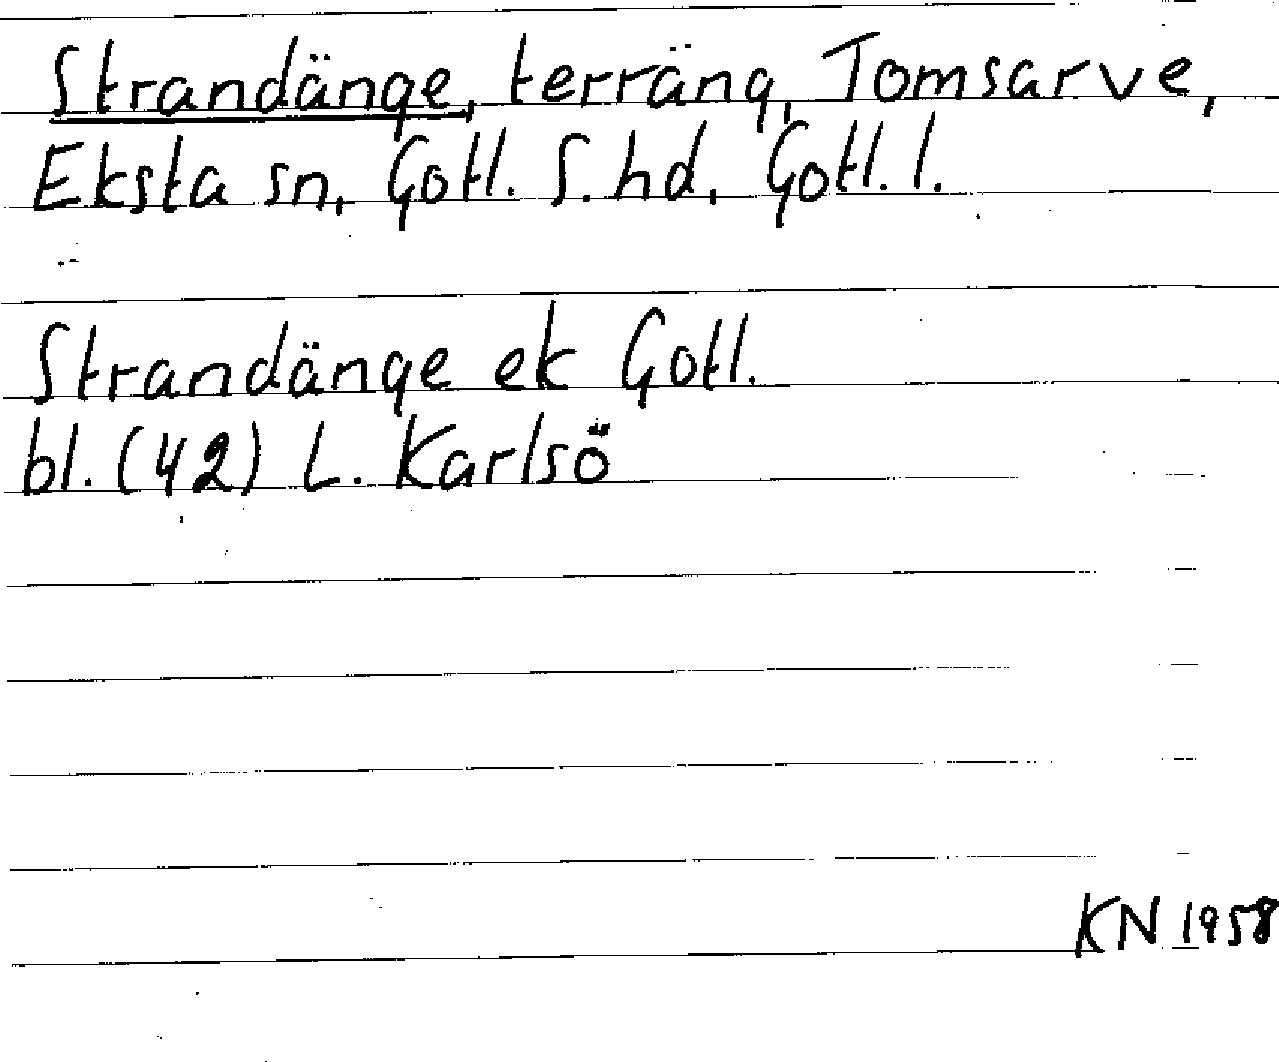 Strandänge, terräng, Tomsarve,
Eksta sn, Gotl. S. hd, Gotl. l.
Strandänge ek Gotl.
bl. (42) L. Karlsö
KN 1958